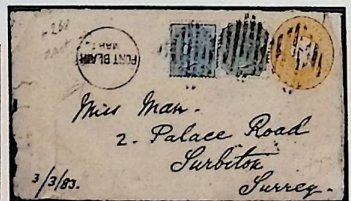 PORT BLAIR
MAR
Miss Man.
2. Palace Road
Surbiton
Surrey.
3/3/83.